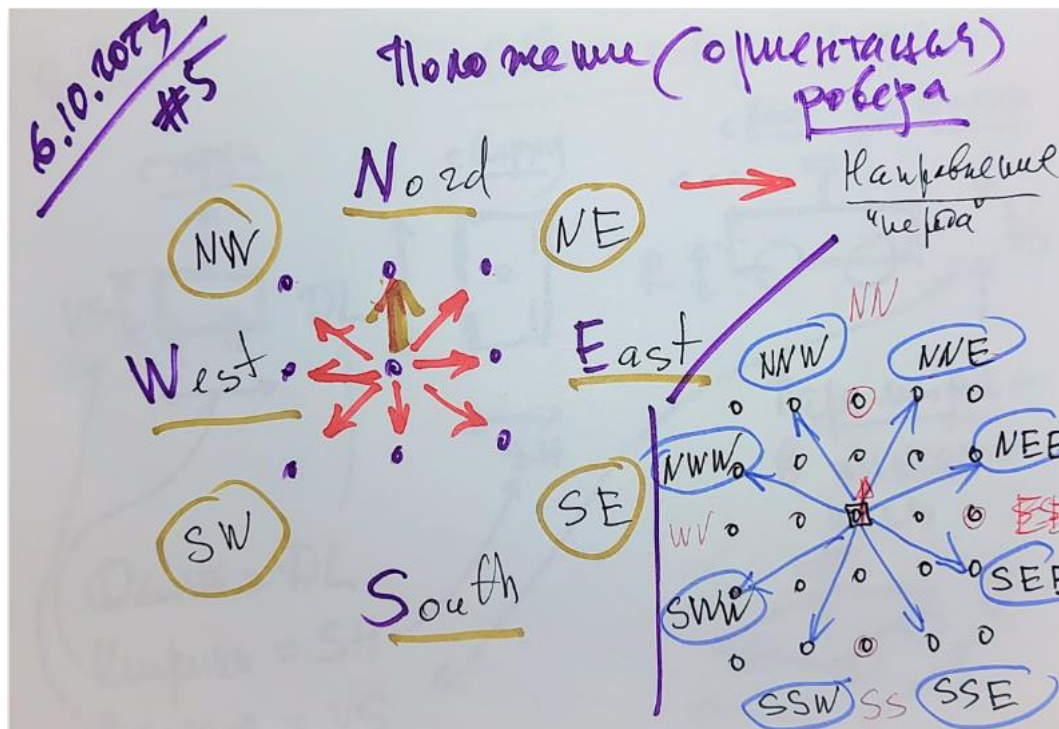 6.10.2023
#5
Положение (ориентация)
ровера
Nord
NW
NE
Направление
"переда"
West
East
SW
SE
South
NN
NNW
NNE
NWW
NEE
SWW
SEE
SSW
SS
SSE